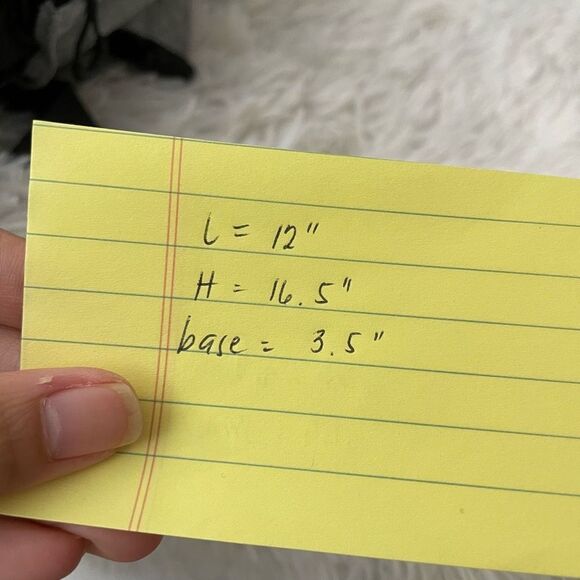 L = 12"
H = 16.5"
base = 3.5"